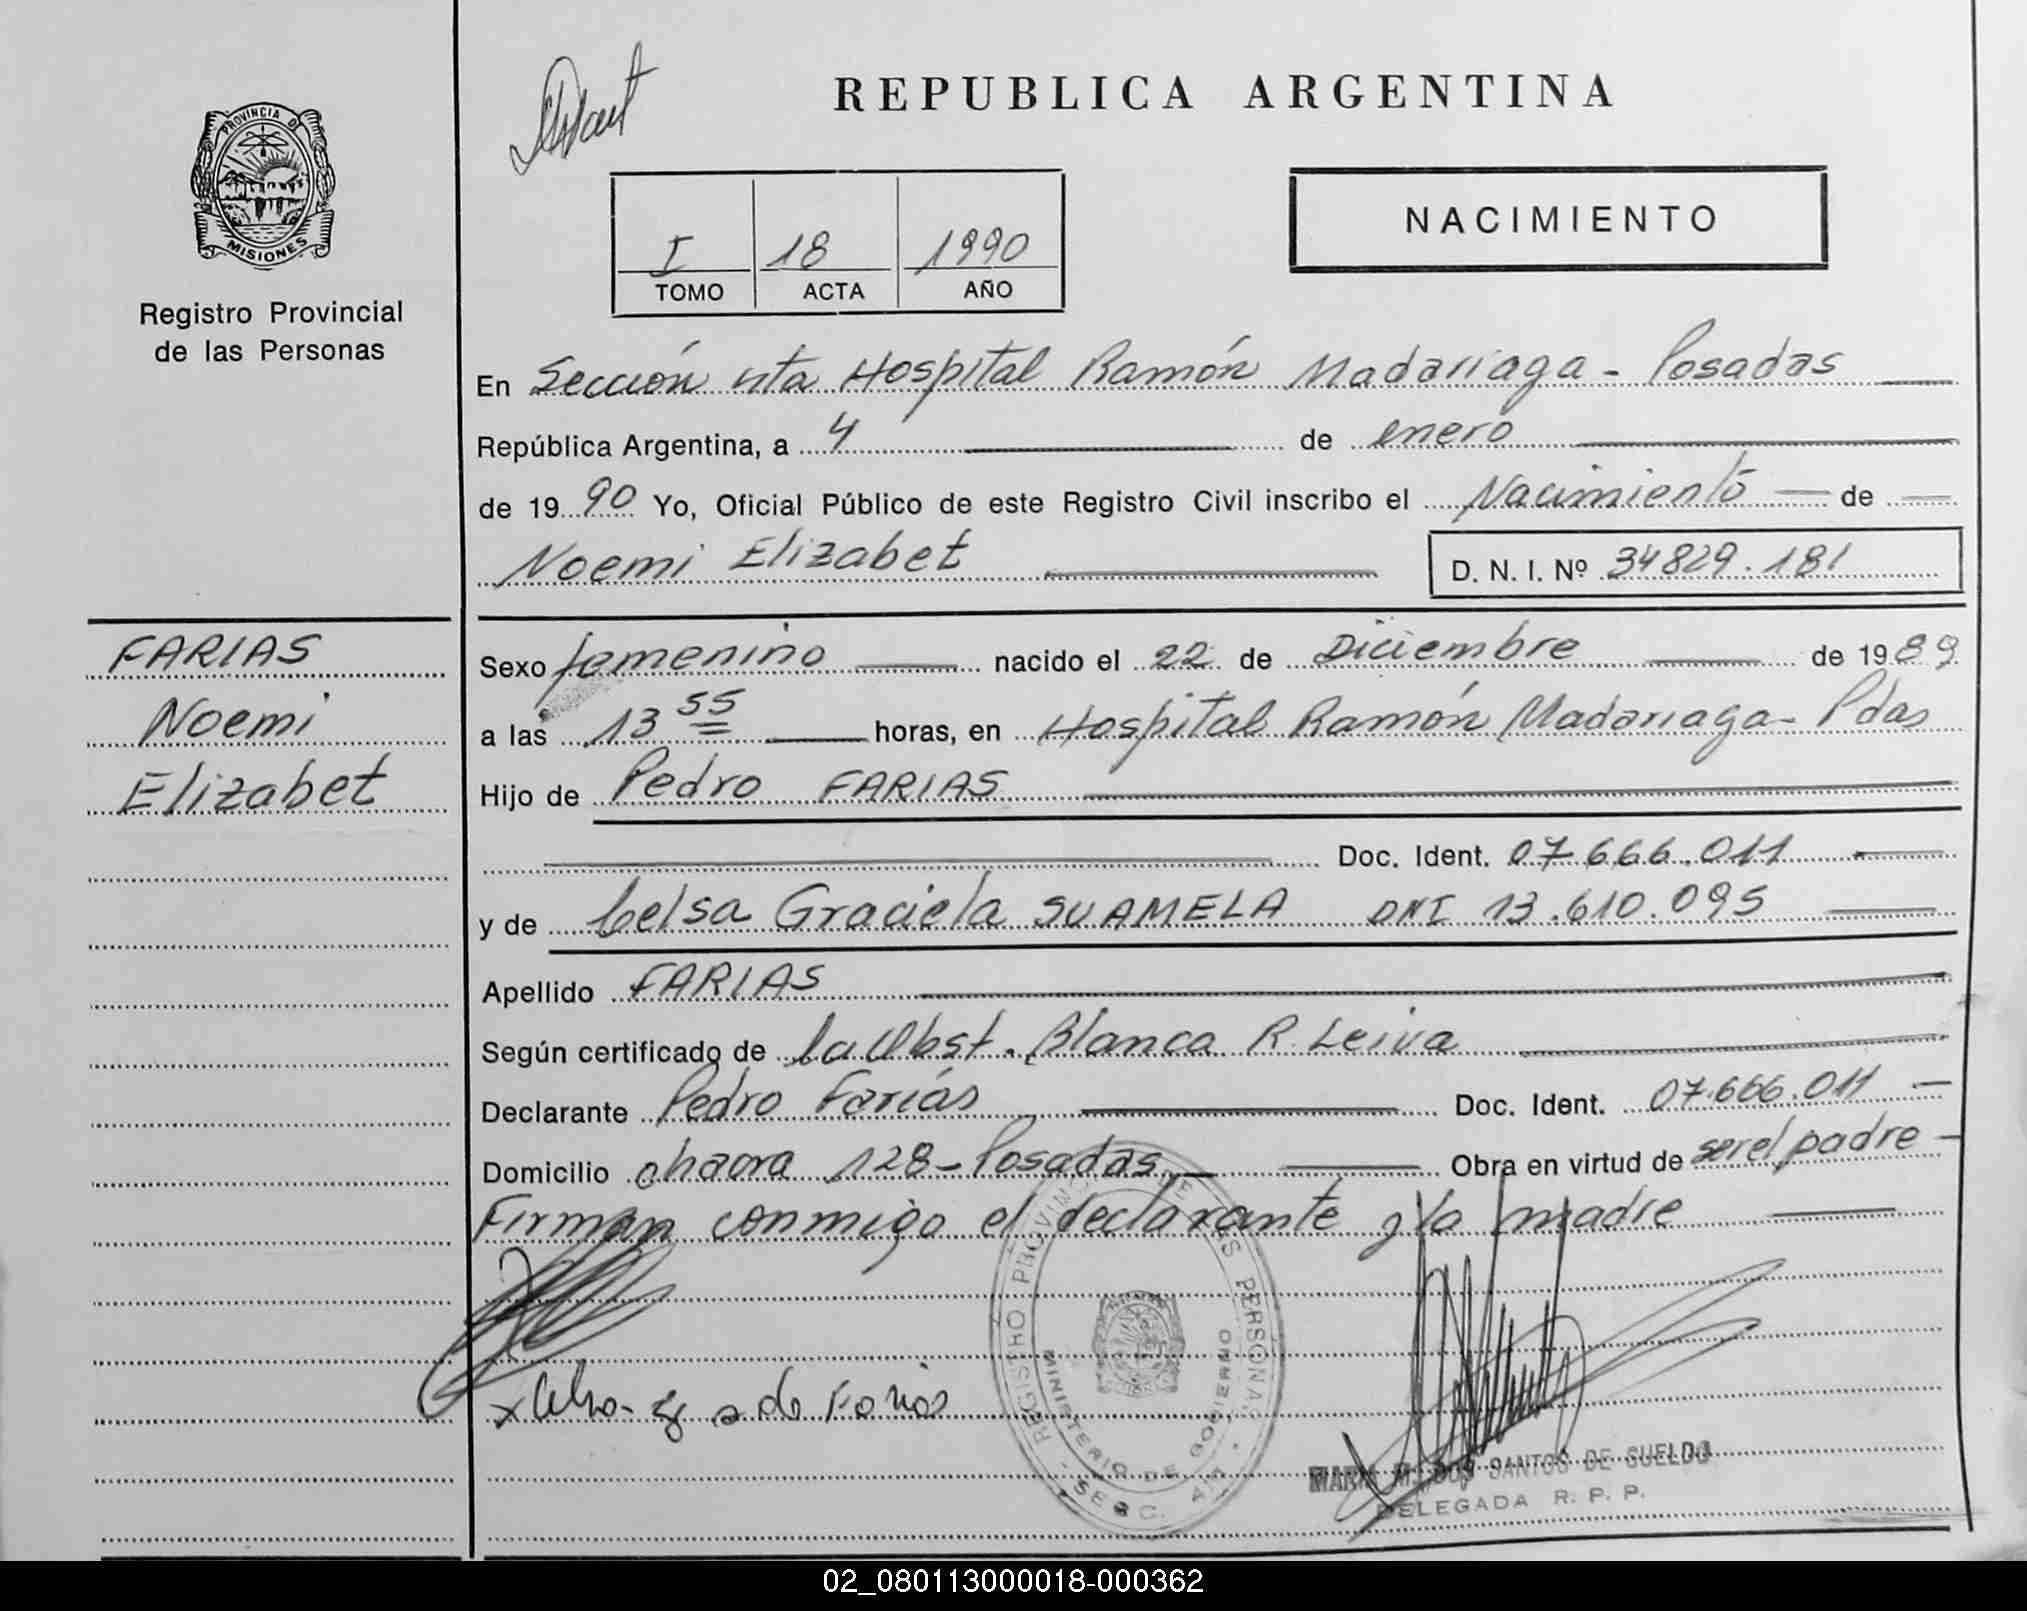 REPUBLICA ARGENTINA
PROVINCIA DE
MISIONES
Registro Provincial
de las Personas
I 18 1990
TOMO ACTA AÑO
NACIMIENTO
En Sección 4ta Hospital Ramón Madariaga - Posadas
República Argentina, a 4 de enero
de 1990 Yo, Oficial Público de este Registro Civil inscribo el Nacimiento de
Noemi Elizabet D. N. I. Nº 34829.181
FARIAS
Noemi
Elizabet
Sexo femenino nacido el 22 de Diciembre de 1989
a las 13 55 horas, en Hospital Ramón Madariaga - Pdas
Hijo de Pedro FARIAS
Doc. Ident. 07.666.011
y de Celsa Graciela SUAMELA DNI 13.610.095
Apellido FARIAS
Según certificado de la Obst. Blanca R. Leiva
Declarante Pedro Farías Doc. Ident. 07.666.011
Domicilio chacra 128 - Posadas Obra en virtud de ser el padre
Firman conmigo el declarante y la madre
REGISTRO PROVINCIAL DE LAS PERSONAS
MINISTERIO DE GOBIERNO
de Farias
MARIA M. DOS SANTOS DE SUELDO
DELEGADA R. P. P.
02_080113000018-000362